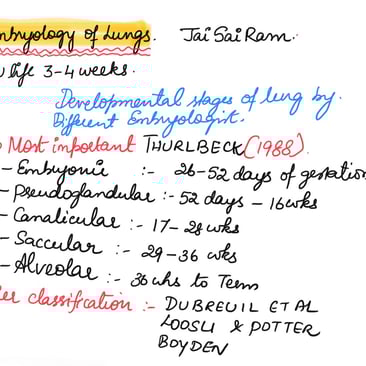 mbryology of Lungs. Jai Sai Ram.
life 3-4 weeks.
Developmental stages of lung by
Different Embryologist.
Most important THURLBECK (1988).
- Embryonic :- 26-52 days of gestation
- Pseudoglandular :- 52 days - 16wks
- Canalicular :- 17-28 wks
- Saccular :- 29-36 wks
- Alveolar :- 36 whs to Term
er classification :- DUBREUIL ET AL
LOOSLI & POTTER
BOYDEN